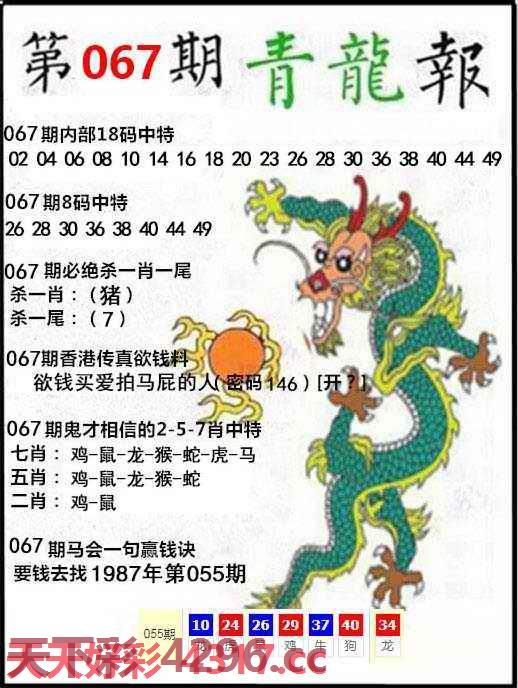 第067期青龍報
067期内部18码中特
02 04 06 08 10 14 16 18 20 23 26 28 30 36 38 40 44 49
067期8码中特
26 28 30 36 38 40 44 49
067期必绝杀一肖一尾
杀一肖：（猪）
杀一尾：（7）
067期香港传真欲钱料
欲钱买爱拍马屁的人（密码146）[开？]
067期鬼才相信的2-5-7肖中特
七肖：鸡-鼠-龙-猴-蛇-虎-马
五肖：鸡-鼠-龙-猴-蛇
二肖：鸡-鼠
067期马会一句赢钱诀
要钱去找1987年第055期
055期 10 24 26 29 37 40 34
虎 鼠 鸡 牛 狗 龙
天下好彩4296.cc